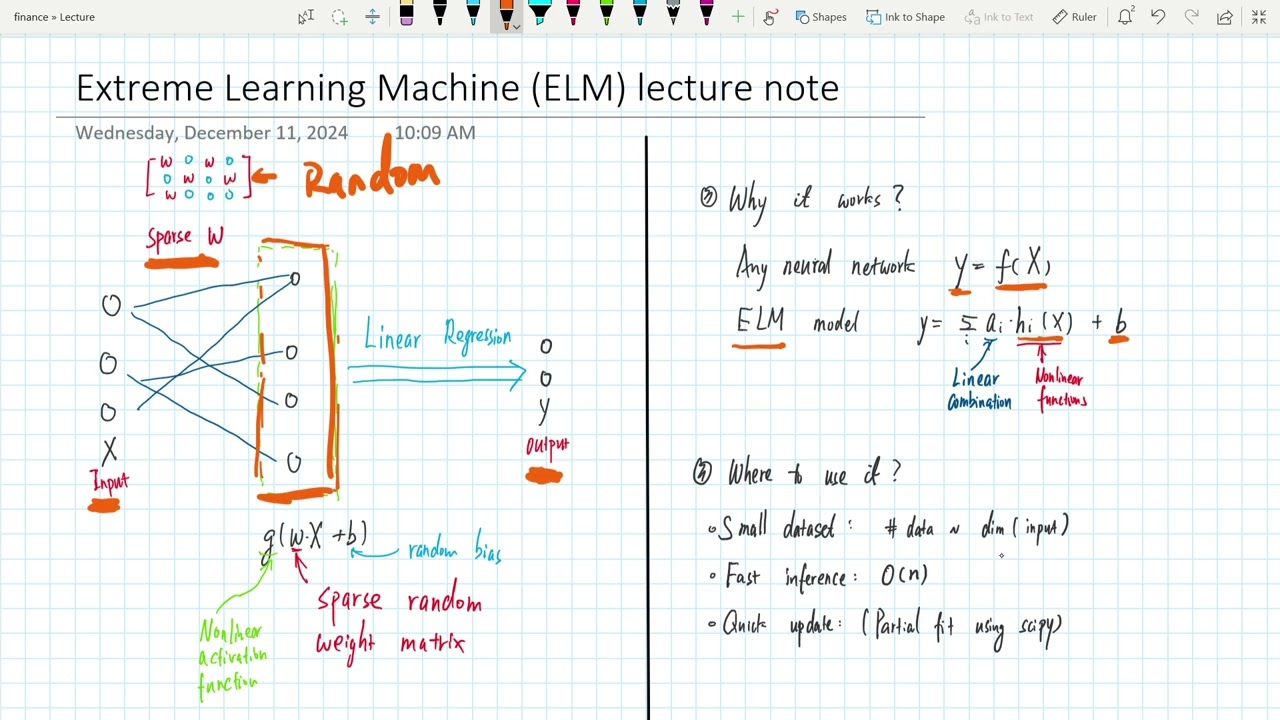 finance » Lecture
Shapes
Ink to Shape
Ink to Text
Ruler
Extreme Learning Machine (ELM) lecture note
Wednesday, December 11, 2024 10:09 AM
[ w 0 w 0
0 w 0 w
w 0 0 0 ]
← Random
Sparse W
Linear Regression
X
Input
Y
Output
g(w·X + b)
random bias
Nonlinear
activation
function
sparse random
weight matrix
③ Why it works?
Any neural network y = f(X)
ELM model y = Σ ai·hi(X) + b
i
Linear
Combination
Nonlinear
functions
④ Where to use it?
• Small dataset: # data ~ dim(input)
• Fast inference: O(n)
• Quick update: (Partial fit using scipy)